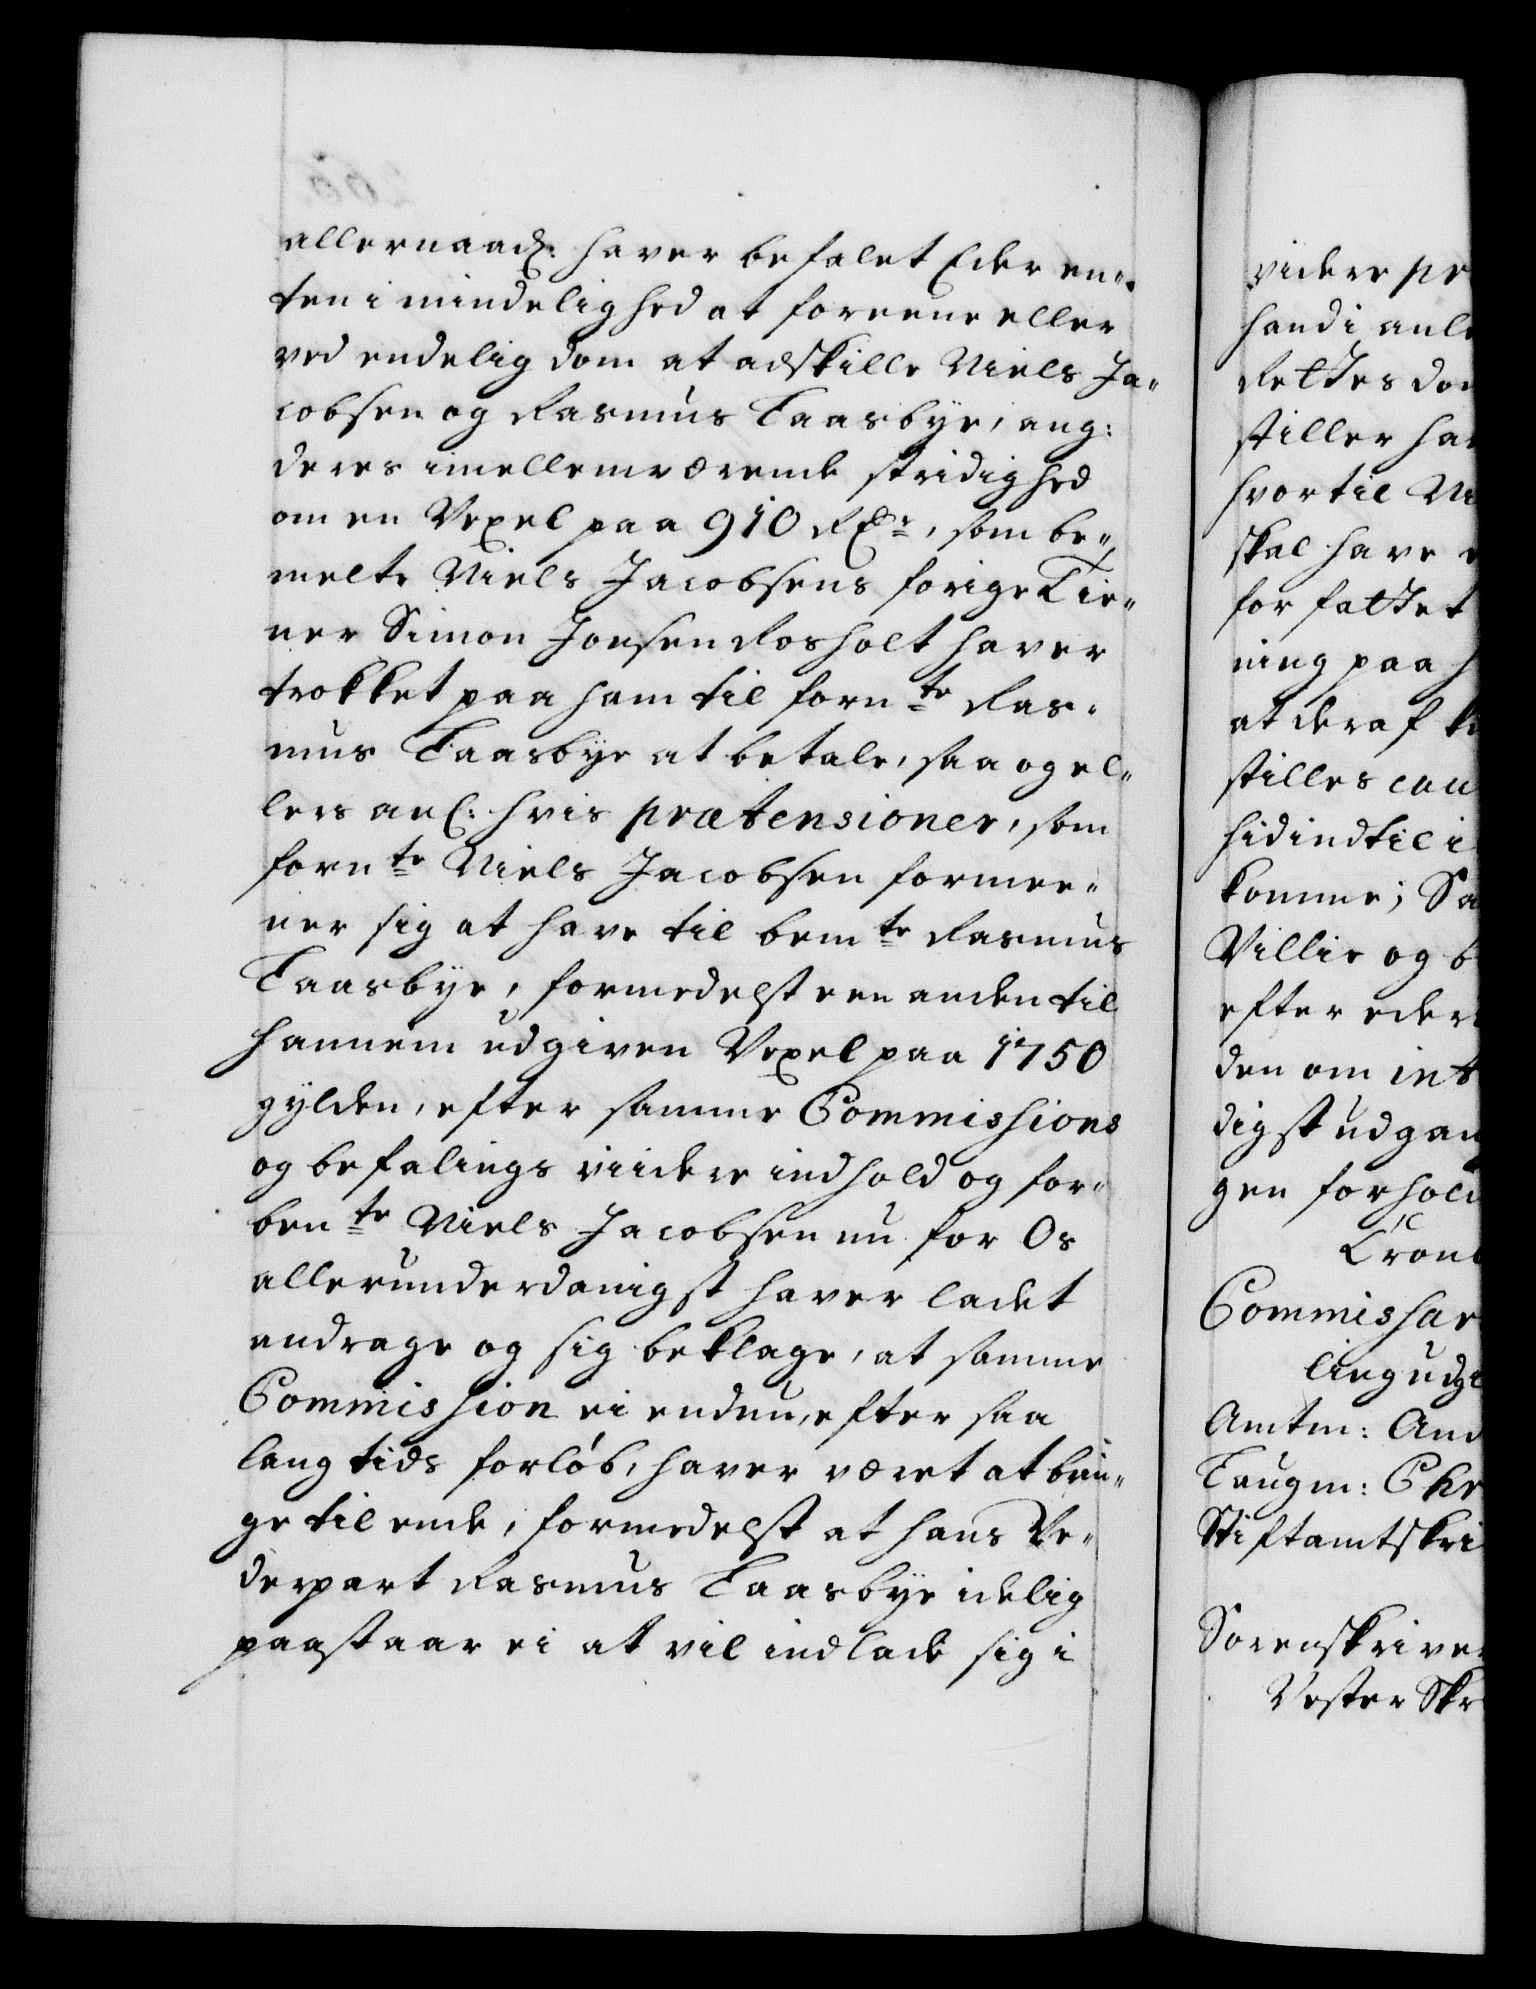 allernaad: haver befalet Eder en„
ten i mindelighed at foreene eller
ved endelig dom at adskille Niels Ja„
cobsen og Rasmus Faasbye, ang:
deres imellemværende stridighed
om en Vexel paa 910 Rdr, som be„
melte Niels Jacobsens forige Tie„
ner Simon Jonsen Rosholt haver
trokket paa ham til fornte Ras„
mus Faasbye at betale, saa og el„
lers anl: hvis prætensioner, som
fornte Niels Jacobsen formee„
ner sig at have til bemte Rasmus
Faasbye, formedelst een anden til
hannem udgiven Vexel paa 1750
gylden, efter samme Commissions
og befalings viidere indhold og for„
bente Niels Jacobsen nu for Os
allerunderdanigst haver ladet
andrage og sig beklage, at samme
Commission ei endnu, efter saa
lang tids forløb, haver været at brin„
ge til ende, formedelst at hans Ve„
derpart Rasmus Faasbye idelig
paastaar ei at vil indlade sig i
videre pr
hand i anl
Rettes dom
stiller ha
hvortil Ni
skal have
forfattet
ning paa h
at deraf k
stilles cau
hidindtil i
komme; Sa
Villie og b
efter eder
den om int
digst udgan
gen forhold
Cronb
Commissar
ling udg
Amtm: And
Laugm: Chr
Stiftamtskri
Sorenskriver
Vester Skr